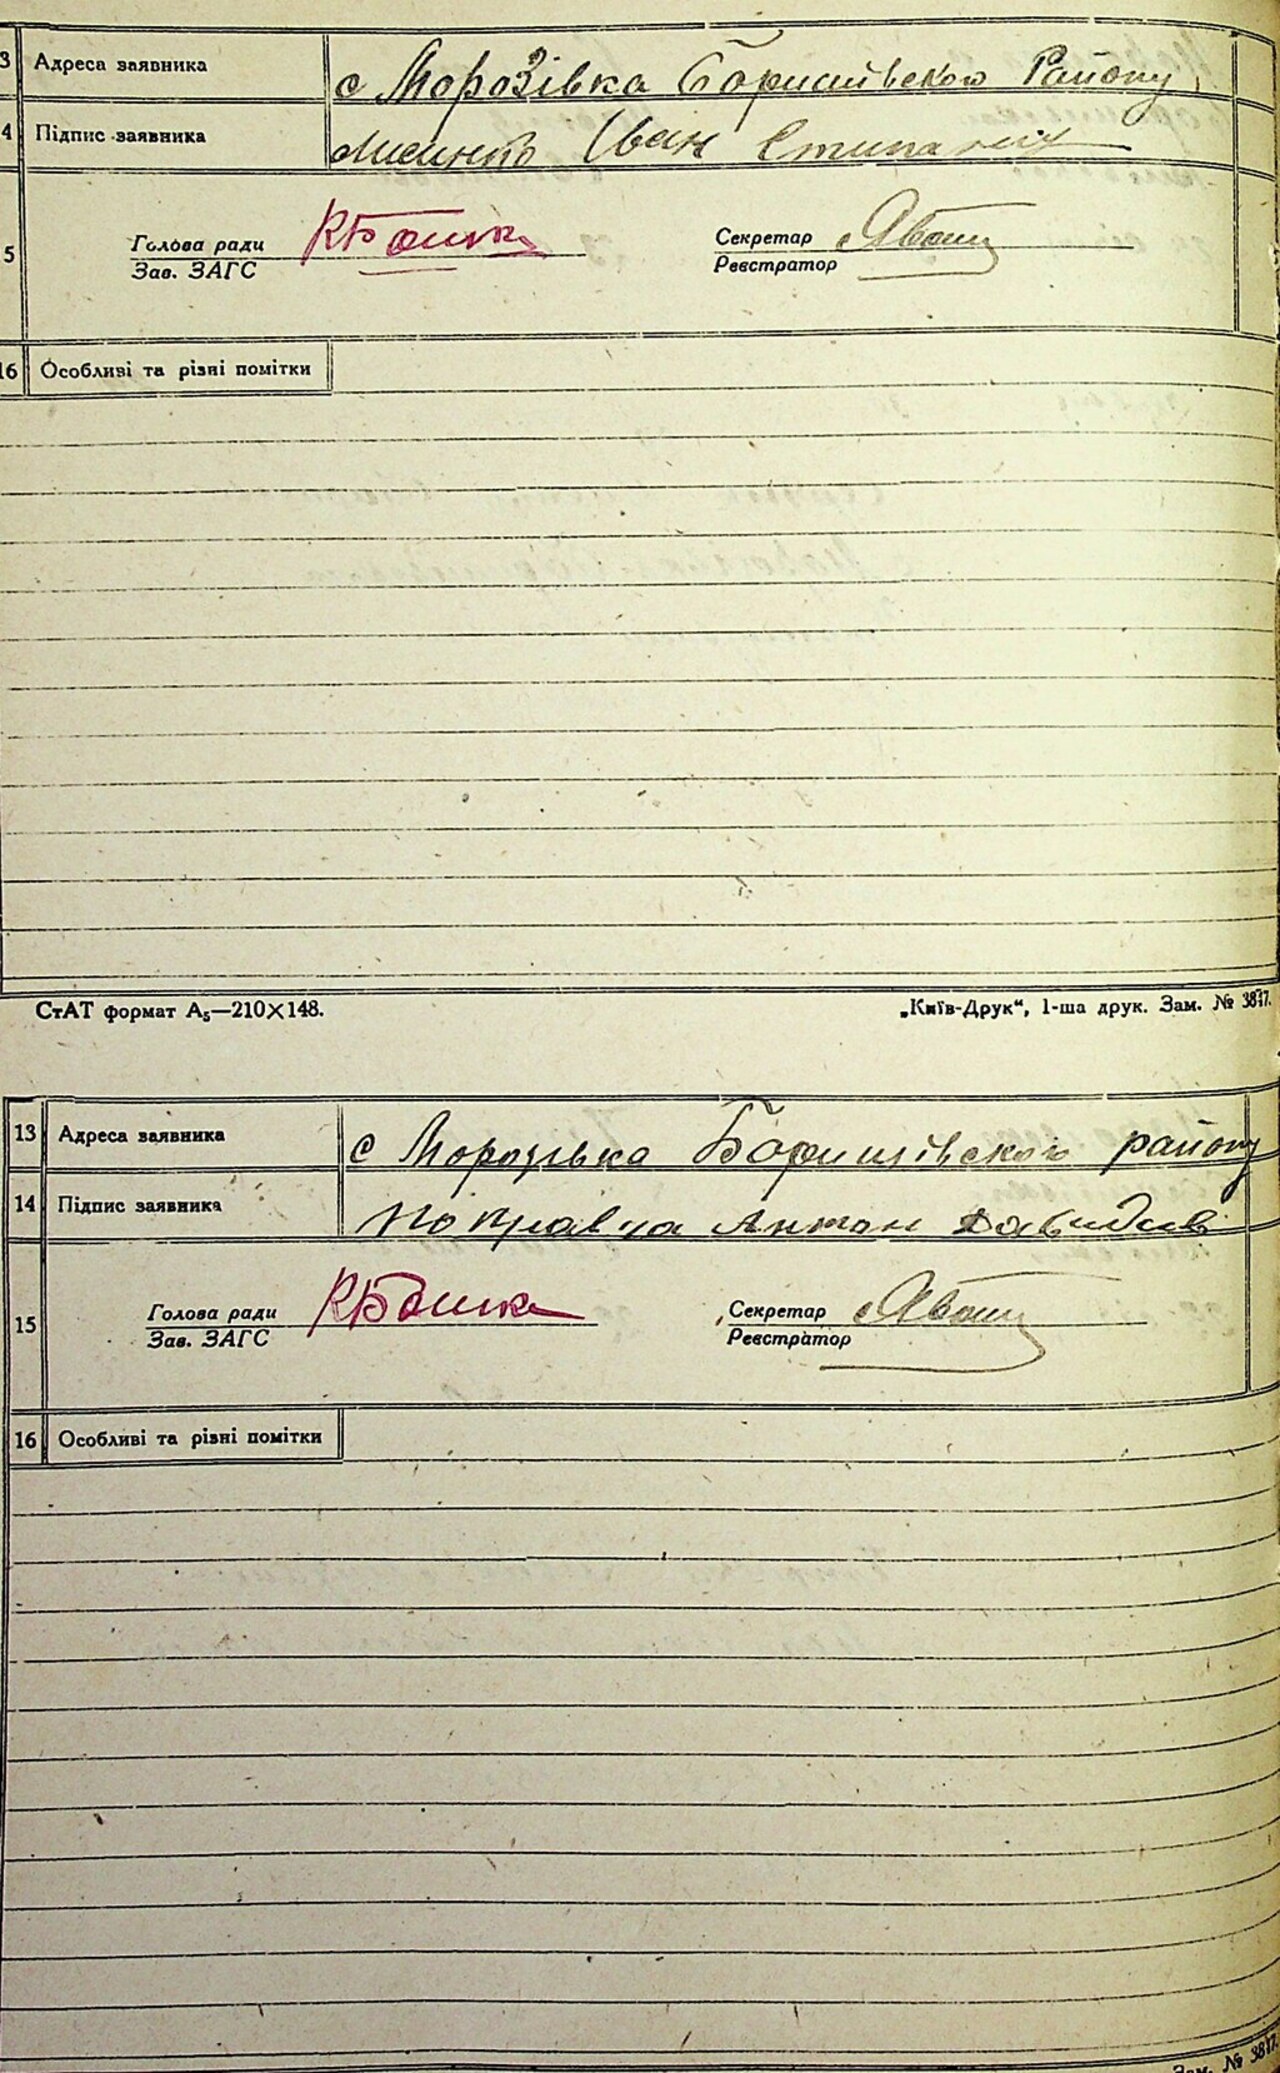 3 Адреса заявника с Морозівка Баришівського Району
4 Підпис заявника Лисенко Іван Степанович
5 Голова ради Секретар
Зав. ЗАГС Реєстратор
16 Особливі та різні помітки
СтАТ формат А₅—210×148. „Київ-Друк“, 1-ша друк. Зам. № 3817.
13 Адреса заявника с Морозівка Баришівського району
14 Підпис заявника Антон Давидов
15 Голова ради Секретар
Зав. ЗАГС Реєстратор
16 Особливі та різні помітки
Зам. № 3817.